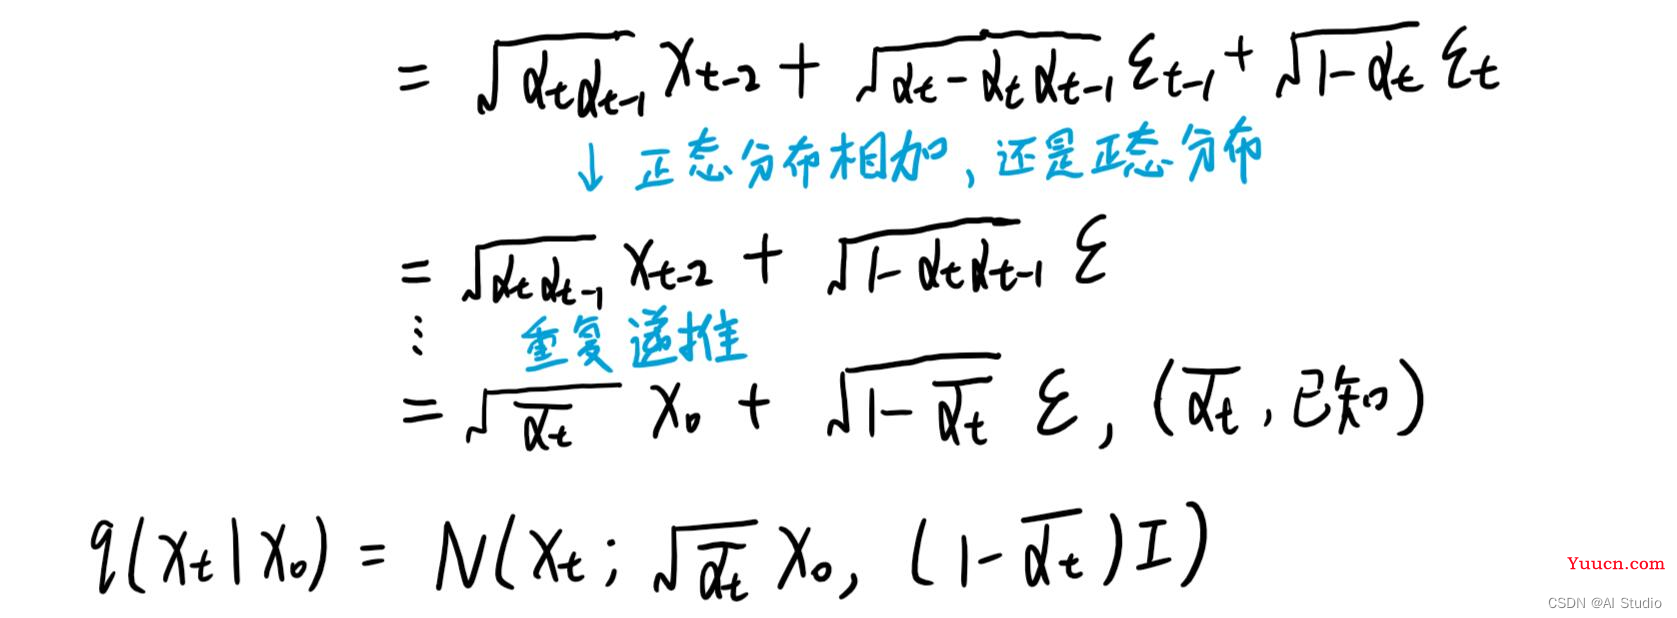 = √(αₜαₜ₋₁) Xₜ₋₂ + √(αₜ - αₜαₜ₋₁) εₜ₋₁ + √(1-αₜ) εₜ
↓ 正态分布相加，还是正态分布
= √(αₜαₜ₋₁) Xₜ₋₂ + √(1-αₜαₜ₋₁) ε
⋮ 重复递推
= √(ᾱₜ) X₀ + √(1-ᾱₜ) ε, (ᾱₜ, 已知)
q(Xₜ|X₀) = N(Xₜ; √(ᾱₜ) X₀, (1-ᾱₜ)I)
Yuucn.com
CSDN @AI Studio